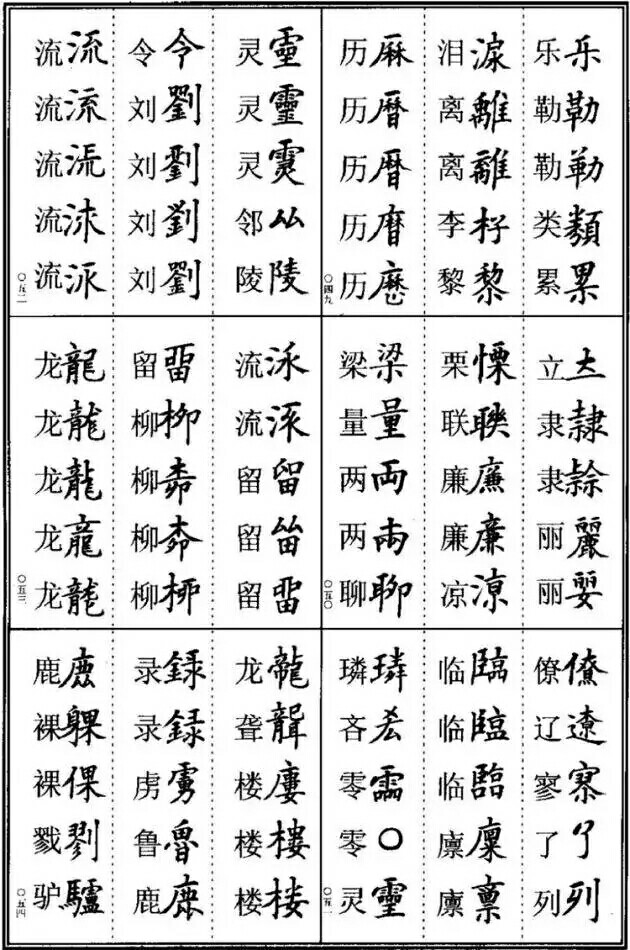 乐乐
勒勒
勒勒
类類
累累
泪淚
离離
离離
李杍
黎黎
历厤
历曆
历曆
历
历歷
〇四九
立
隶隸
隶
丽麗
丽
栗慄
联聨
廉廉
廉廉
凉凉
梁梁
量量
两両
两両
聊聊
〇五〇
僚僚
辽遼
寥
了了
列列
临臨
临臨
临臨
廪廩
廪禀
璘璘
吝
零霝
零〇
灵靈
〇五一
灵靈
灵靈
灵
邻厸
陵陵
令令
刘劉
刘劉
刘劉
刘劉
流流
流流
流流
流
流
〇五二
流
流
留留
留
留畱
留畱
柳柳
柳
柳
柳
龙龍
龙龍
龙龍
龙龍
龙龍
〇五三
龙龍
聋聾
楼廔
楼樓
楼楼
录録
录録
虏虜
鲁魯
鹿鹿
鹿鹿
裸躶
裸倮
戮剹
驴驢
〇五四